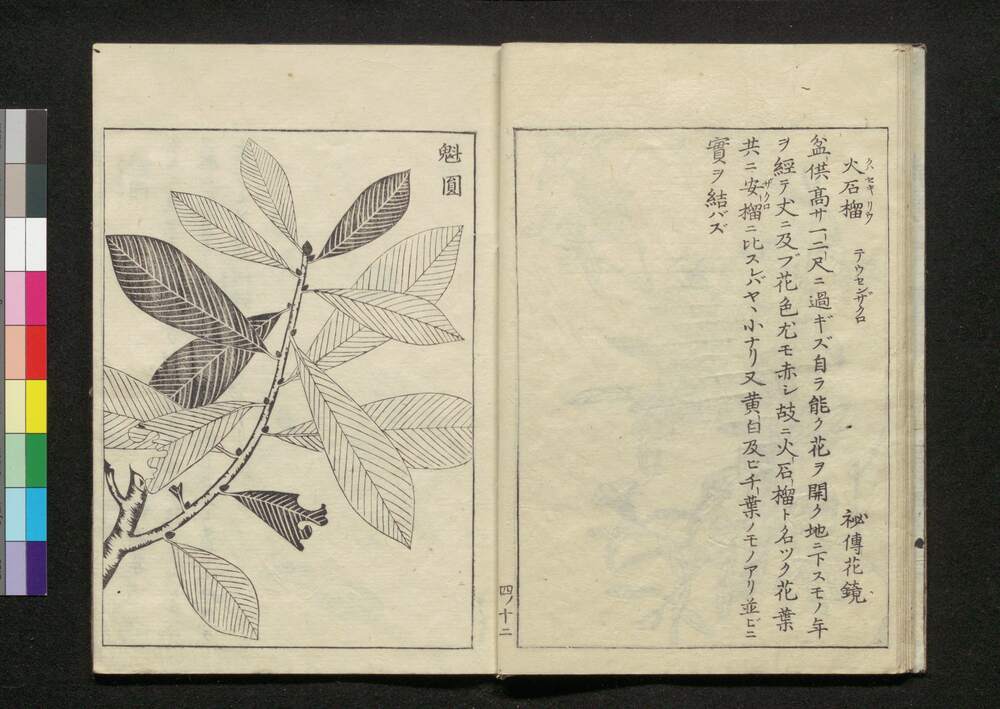 火石榴 クハセキリウ テウセンザクロ 祕傳花鏡
盆供髙サ一二尺ニ過ギズ自ラ能ク花ヲ開ク地ニ下スモノ年
ヲ經テ丈ニ及ブ花色尤モ赤シ故ニ火石榴ト名ツク花葉
共ニ安榴ザクロニ比スレバヤヽ小ナリ又黄白及ビ千葉ノモノアリ並ビニ
實ヲ結バズ
四ノ十二
魁圓